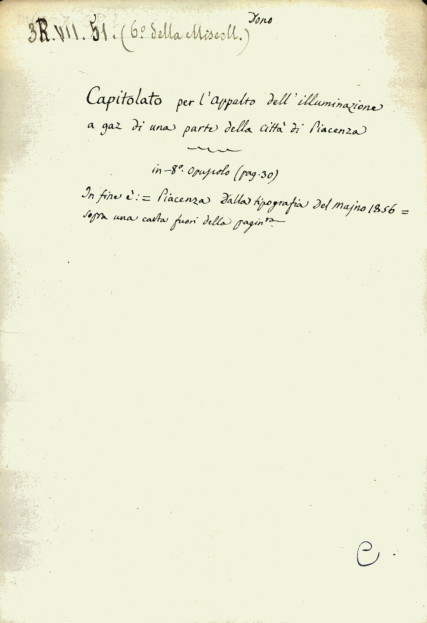 Dono
3R.VII.51. (6º della Miscell.)
Capitolato per l'Appalto dell'illuminazione
a gaz di una parte della Città di Piacenza
in-8º. Opuscolo (pag. 30)
In fine è: = Piacenza Dalla tipografia Del Majno 1856 =
sopra una carta fuori della paginra
C.